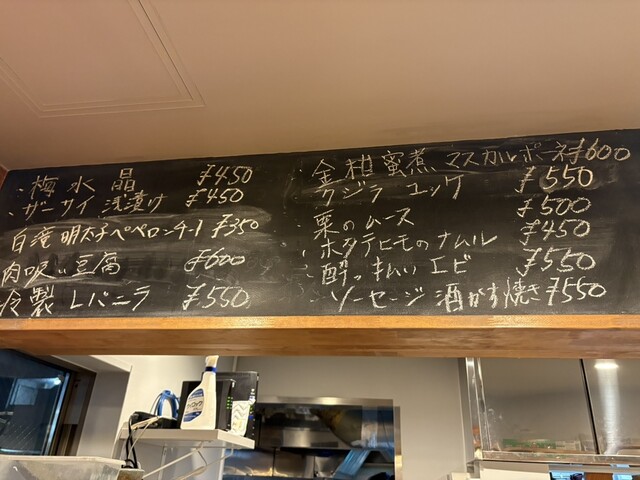 ・梅水晶 ¥450
・ザーサイ浅漬け ¥450
白滝明太子ペペロンチーノ ¥350
肉吸い豆腐 ¥600
冷製レバニラ ¥550
・金柑蜜煮 マスカルポーネ ¥600
・クジラユッケ ¥550
・栗のムース ¥500
・ホタテヒモのナムル ¥450
・酔っ払いエビ ¥550
・ソーセージ酒かす焼き ¥550